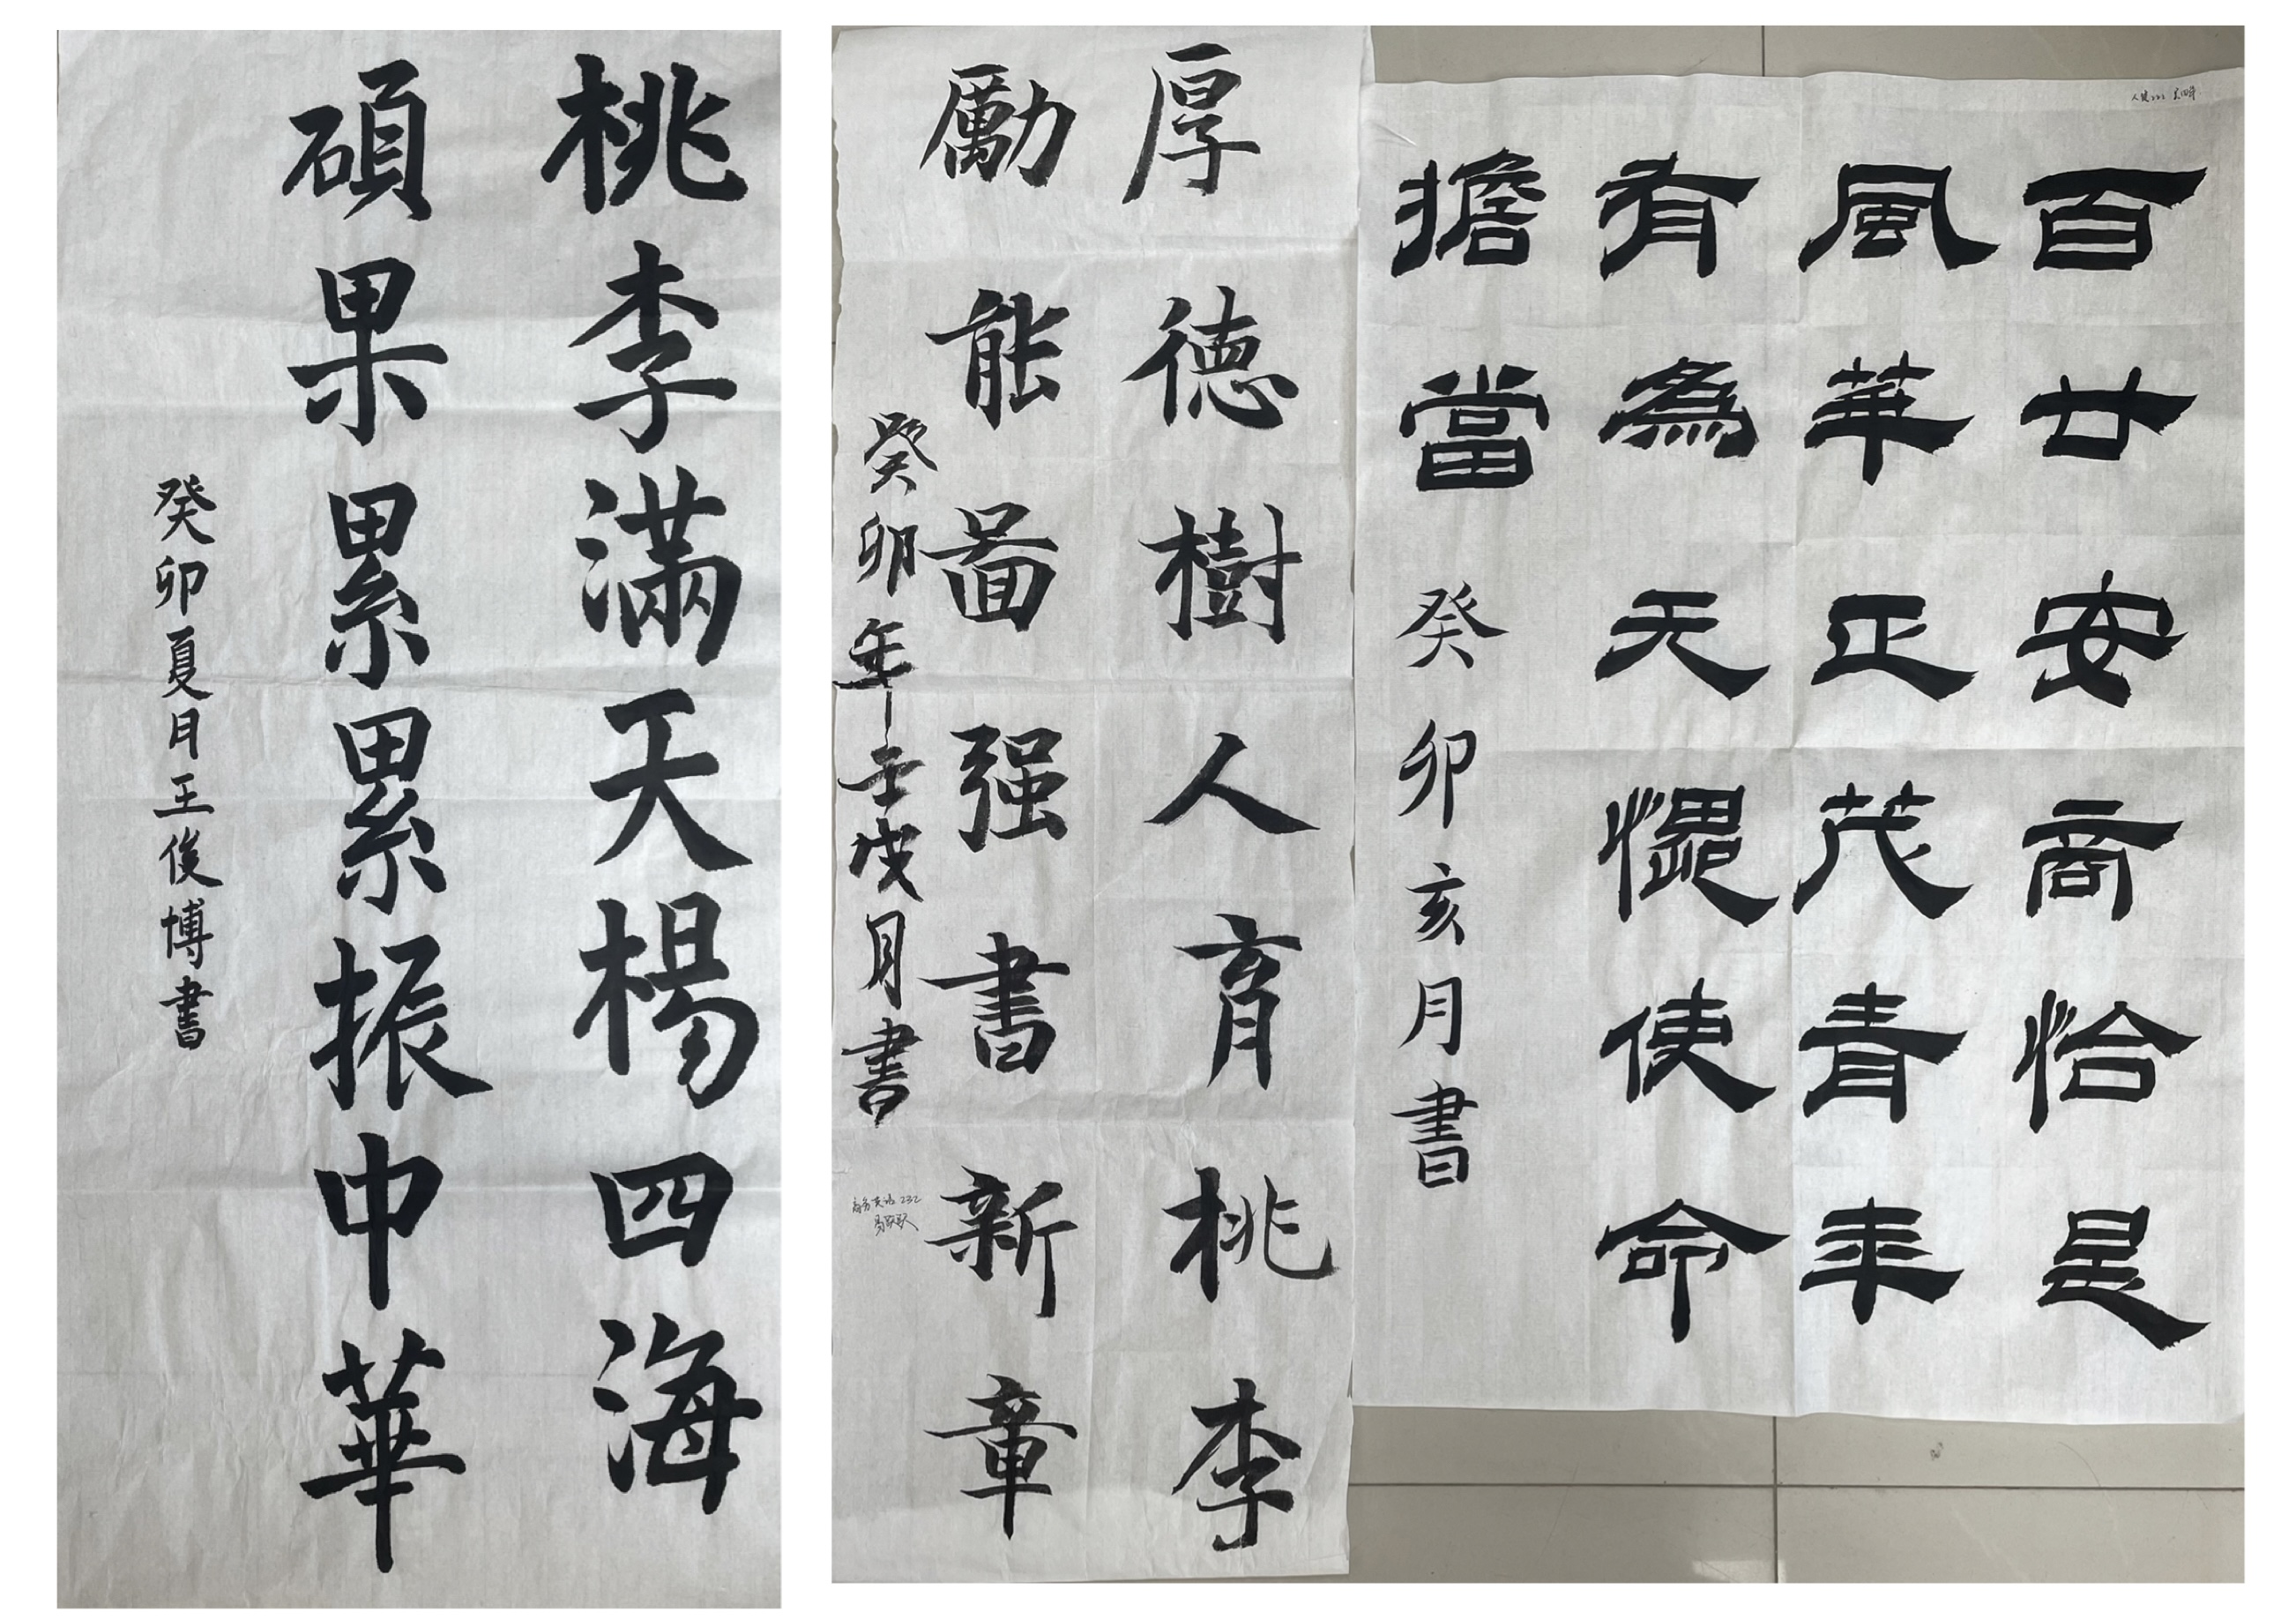 桃李滿天楊四海
碩果累累振中華
癸卯夏月王俊博書
厚德樹人育桃李
勵能圖强書新章
癸卯年壬戌月書
商务英语232
人健222
百廿安商恰是
風華正茂青年
有為无愧使命
擔當
癸卯亥月書